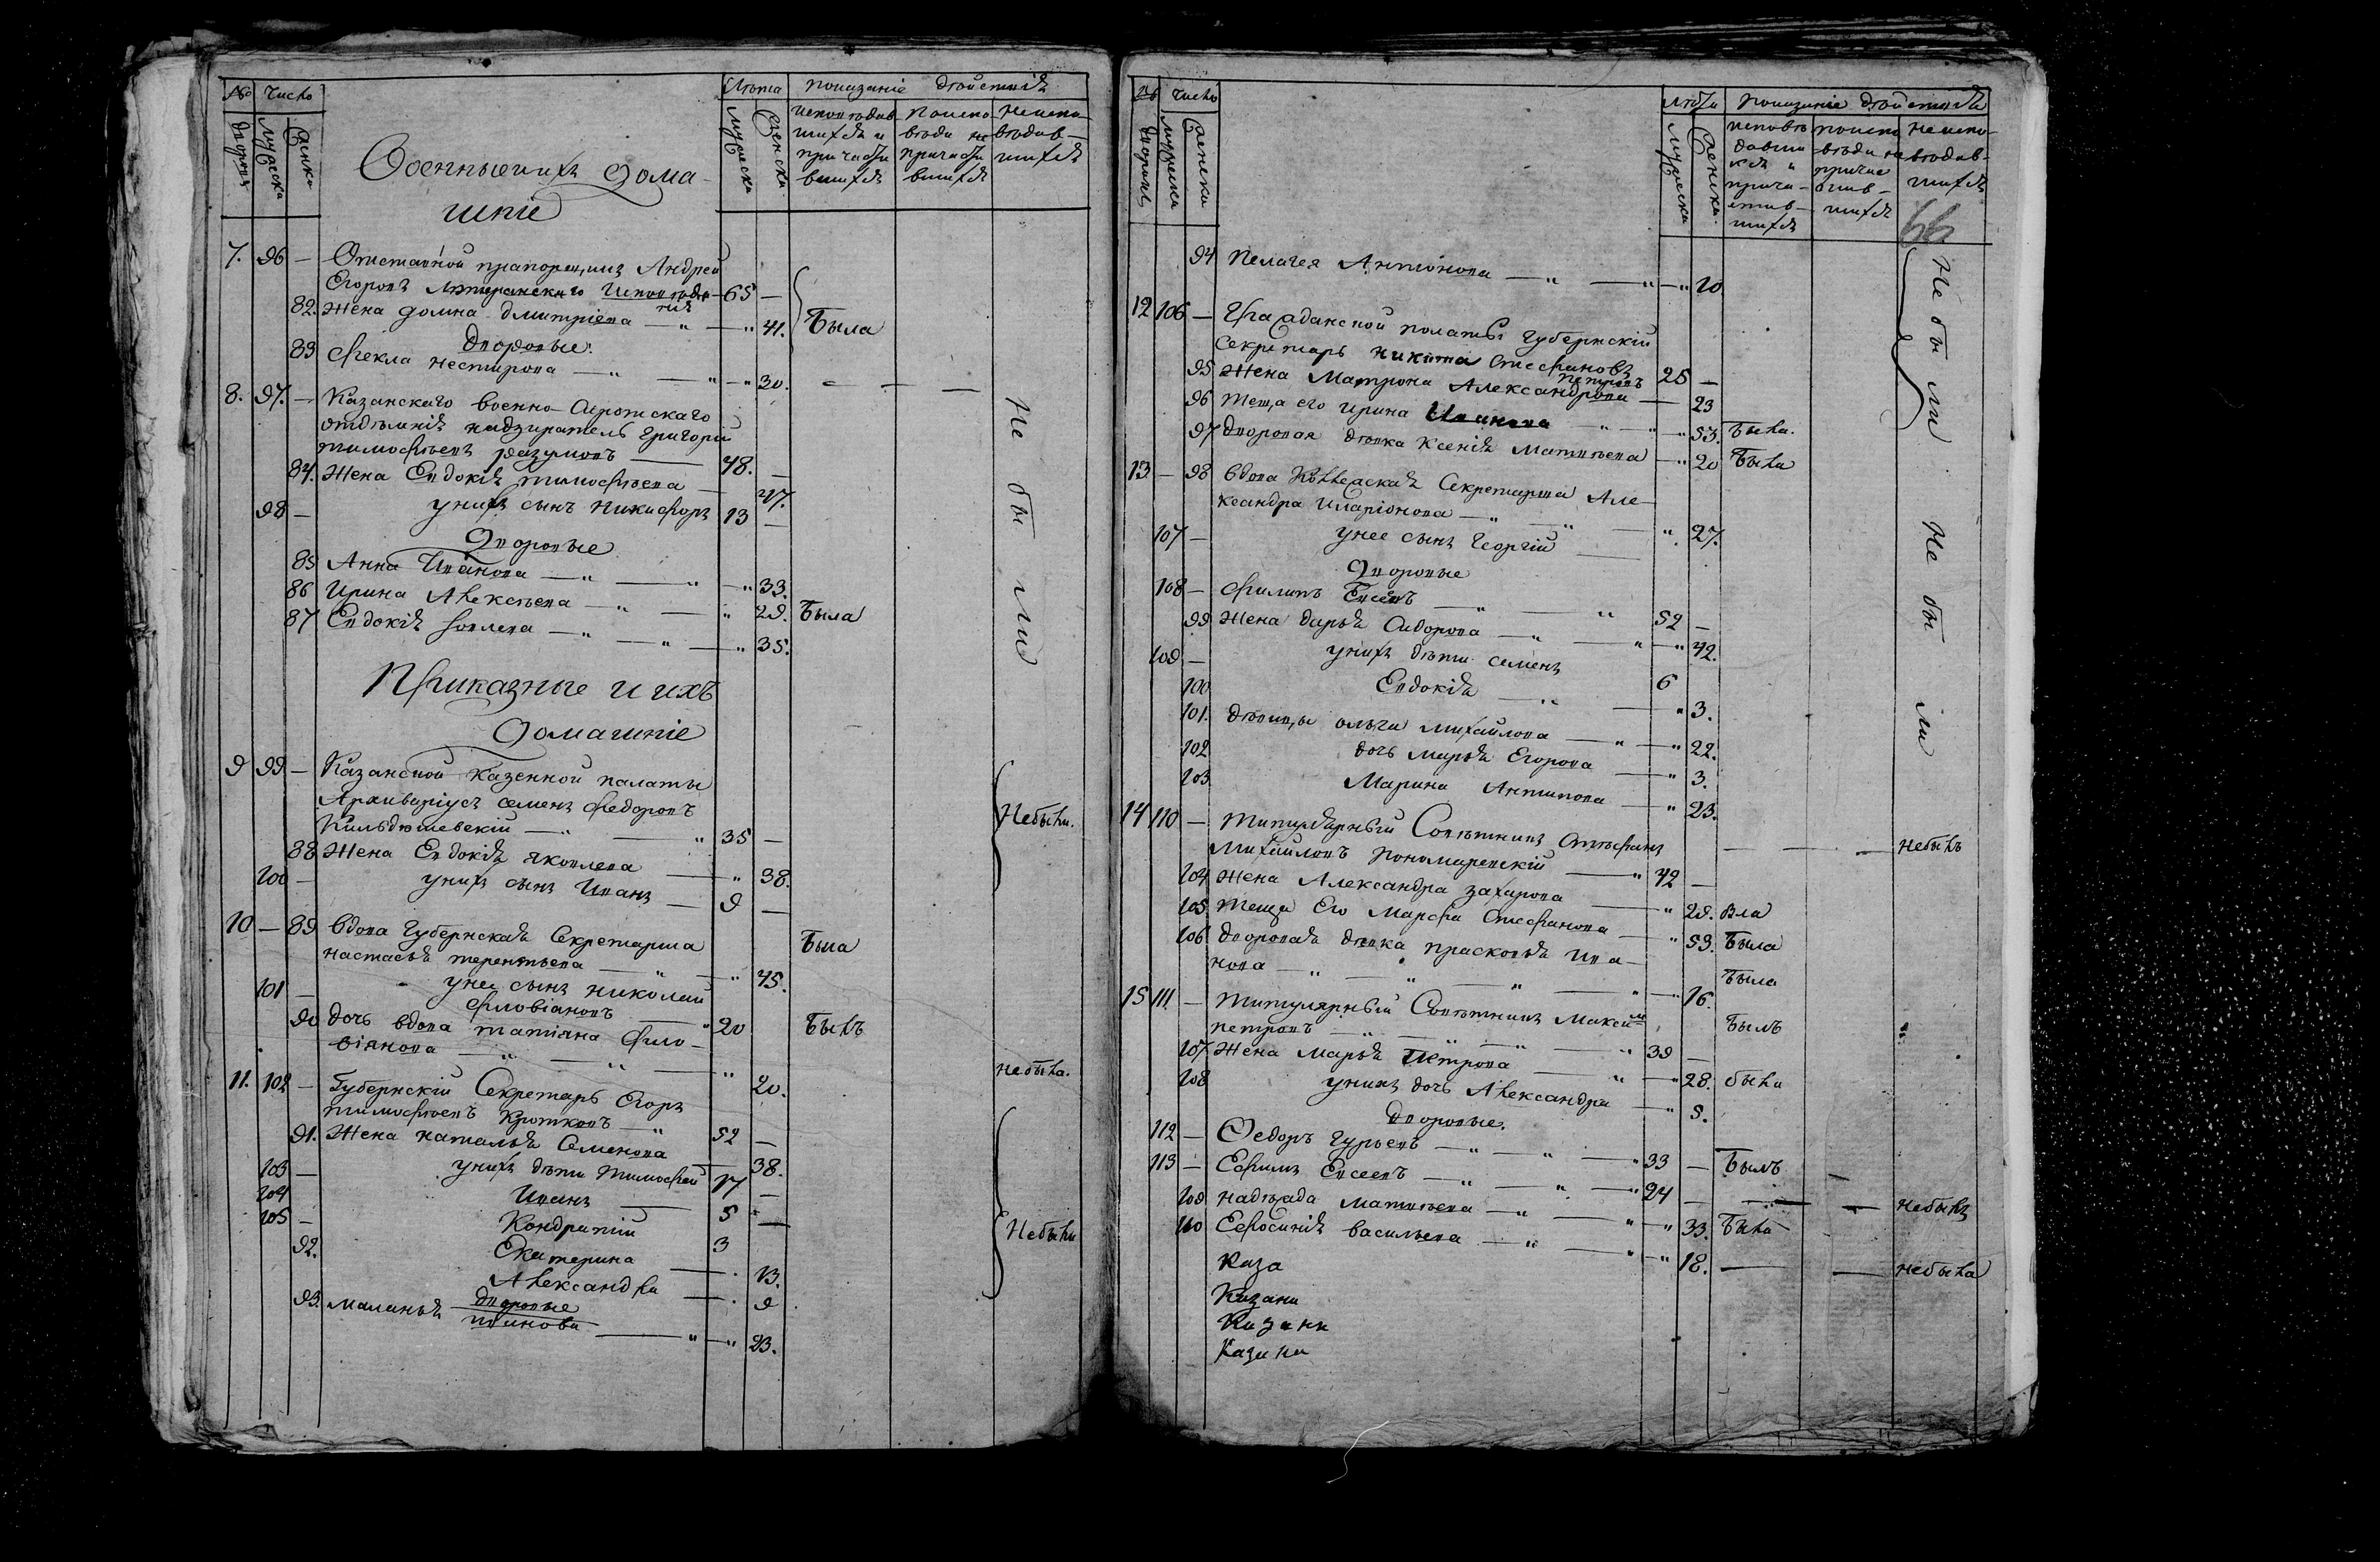 № Число Лѣта показаніе дѣйствія
дворовъ мужеска женска мужеска женска исповѣдав- по испо- не испо-
шихся и вѣди не вѣдав-
причасти причасти шихся
вшихся вшихся
Военные и ихъ дома-
шніе
7. 96 — Отставной прапорщикъ Андрей
Егоровъ Лютеранскаго исповѣда-
нія 65 —
82. Жена домна дмитріева — " — " 41. Была
дворовые.
83 Фекла нестирова — " — " — " 30.
8. 97. — Казанскаго военно-Сиротскаго
отдѣлнія надзиратель григорій
тимофѣевъ разумовъ — 48. —
84. Жена Евдокія тимофѣева — 47.
98 — у нихъ сынъ никифоръ 13 —
Дворовые
85 Анна Иванова — " — " — " 33.
86 Ирина Алексѣева — " — " 29. Была
87 Евдокія Яковлева — " — " — " 35.
Не были
Приказные и ихъ
домашніе
9 99 — Казанской казенной палаты
Архиваріусъ семенъ федоровъ
Кильдюшевскій — " — " 35 — Небыли.
88 Жена Евдокія яковлева — " 38.
100 — у нихъ сынъ Иванъ — 9 —
10 — 89 вдова Губернская Секретарша
настасья терентьева — " — " 45. Была
101 — у нее сынъ николай
филовіановъ — " 20 Былъ
90 дочь вдова татіана фило-
віянова — " — " — " 20. небыла.
11. 102 — Губернскій Секретарь Егоръ
тимофѣевъ Кротковъ — " 52 —
91. Жена наталья Семенова — 38.
103 — у нихъ дѣти тимофей 17 —
104 Иванъ — 5 —
105 — Кондратій 3
92. Екатерина — 13.
Александра — 9 Небыли
дворовые
93. маланья иванова — " — " 23.
№ Число Лѣта показаніе дѣйствія
дворовъ мужеска женска мужеска женска исповѣ по испо не испо-
давши вѣди не вѣдав-
хся и причас шихся
прича- тив-
стив- шихся
шихся
66
94 Пелагея Антонова — " — " — " 10
12 106 — Гражданской полаты губернскій
Секретарь никита Стефановъ
петровъ 25 —
95 Жена Матрона Александрова — 23
Не были
96 теща его ирина Иванова — " — " — " 53. Была.
97 дворовая дѣвка Ксенія Матвѣева — " 20 Была
13 — 98 вдова Коллежская Секретарша Але-
ксандра иларіонова — " — " — " 27.
107 — у нее сынъ Георгій —
Дворовые
108 — Филипъ Евсѣевъ — " — " 52 —
99 Жена дарья Сидорова — " — " — " 42.
109 — у нихъ дѣти семенъ 6
100 Евдокія — " — " 3.
101. дѣвица ольга михайлова — " — " 22.
102 дочь марья Егорова — " 3.
103 Марина Антипова — " 23.
Не были
14 110 — титулярный Совѣтникъ Стефанъ
михайловъ пономаревскій — " 42 — небылъ
104 Жена Александра захарова — " 29. вла
105 теща Его Марфа Стефанова — " 59. Была
106 дворовая дѣвка прасковья Ива-
нова — " — " — " — " 16. Была
15 111. — титулярный Совѣтникъ Максимъ
петровъ — " — " — " — " 39 — Былъ
107 Жена Марья петрова — " — " 28. была
108 у нихъ дочь Александра — " 5.
дворовые.
112 — Федоръ Гурьевъ — " — " — " 33 — Былъ
113 — Ефимъ Евсеевъ — " — " — " 24 — небылъ
109 надежда матвѣева — " — " — " 33. Была
110 Ефросинія васильева — " — " — " 18. — небыла
Каза
Казани
Казани
Казани